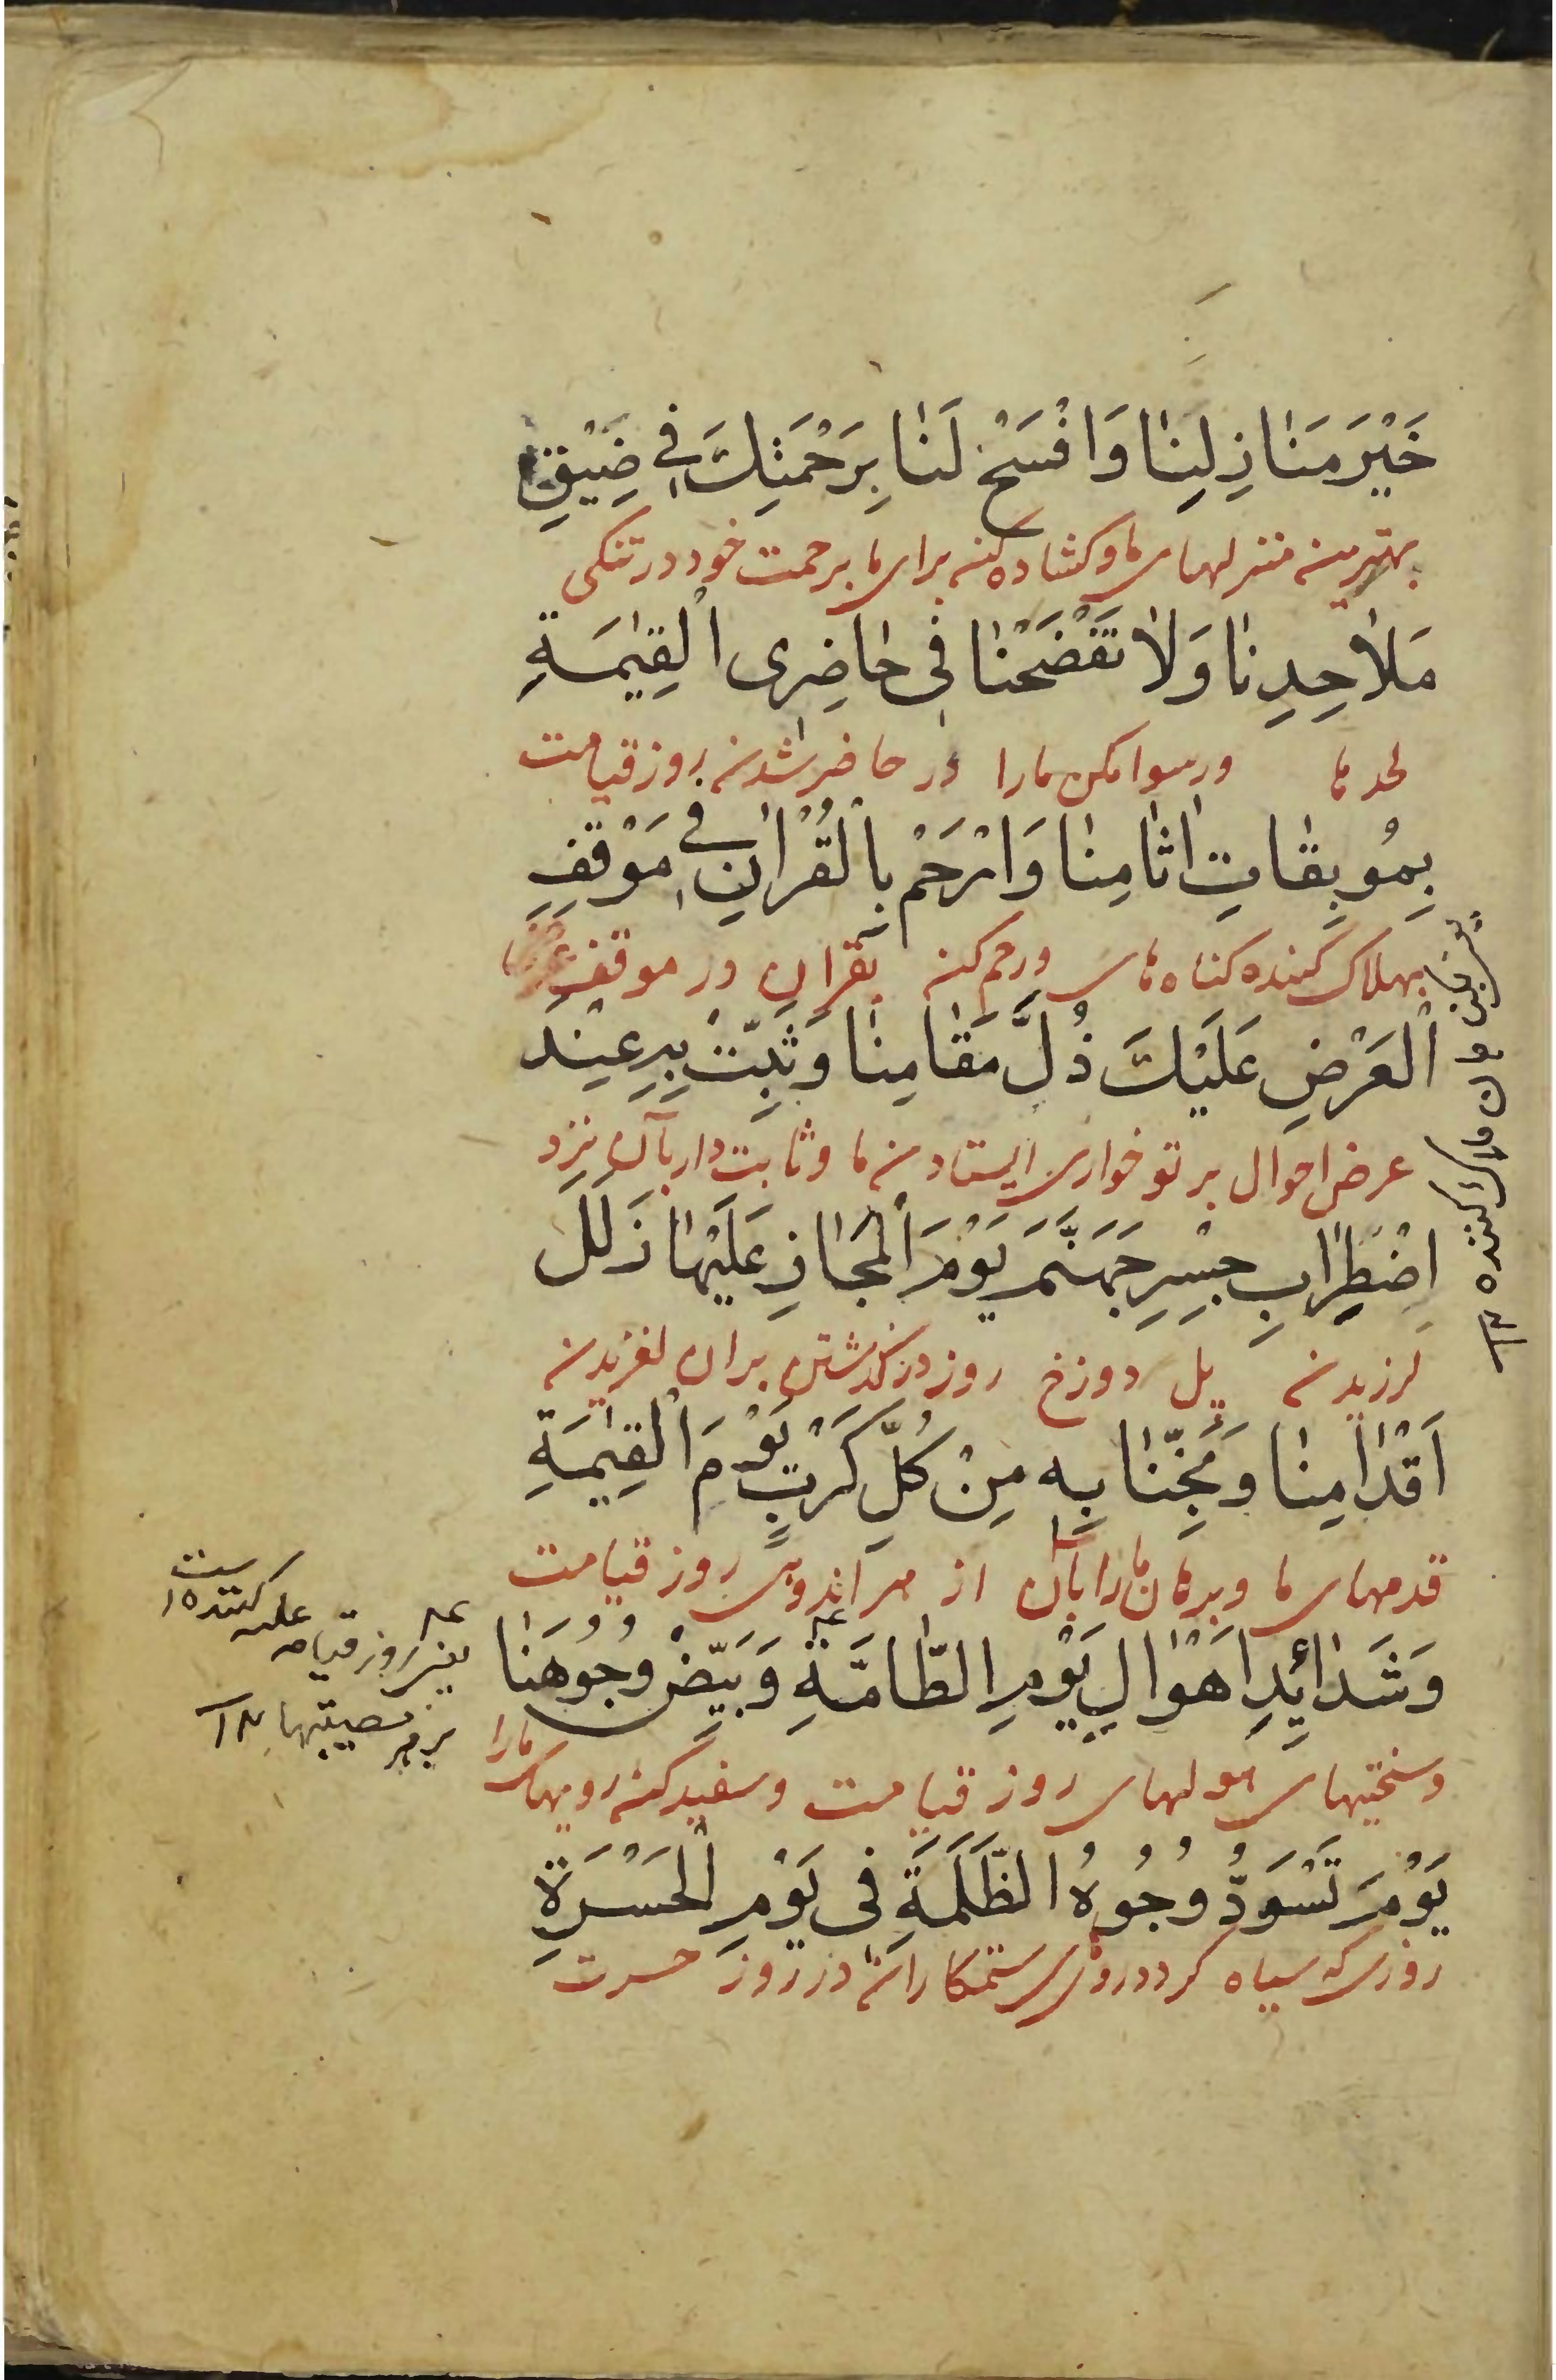 خَيْرَ مَنٰازِلِنٰا وَافْسَحْ لَنٰا بِرَحْمَتِكَ فِي ضِيْقِ
بهترین منزلهای ما و کشاده کن برای ما برحمت خود در تنکی
مَلاٰحِدِنٰا وَلاٰ تَفْضَحْنٰا فِى حٰاضِرِى الْقِيٰمَةِ
لحد ما ورسوا مکن مارا در حاضر شدن روز قیامت
بِمُوبِقٰاتِ اٰثٰامِنٰا وَارْحَمْ بِالْقُرْاٰنِ فِي مَوْقِفِ
بهلاک کننده کناه ما ورحم کن بقران در موقف
الْعَرْضِ عَلَيْكَ ذُلَّ مَقٰامِنٰا وَثَبِّتْ بِهِ عِنْدَ
عرض احوال بر تو خواری ایستادن ما وثابت دار بآن نزد
اضْطِرٰابِ جِسْرِ جَهَنَّمَ يَوْمَ الْمَجٰازِ عَلَيْهٰا زَلَلَ
لرزیدن پل دوزخ روز در کذشتن بران لغزیدن
اَقْدٰامِنٰا وَنَجِّنٰا بِهِ مِنْ كُلِّ كَرْبٍ يَوْمَ الْقِيٰمَةِ
قدمهای ما وبرهان ما را بآن از هر اندوهی روز قیامت
وَشَدٰائِدِ اَهْوٰالِ يَوْمِ الطّٰامَّةِ وَبَيِّضْ وُجُوهَنٰا
وسختیهای هولهای روز قیامت وسفید کن رویهای مارا
يَوْمَ تَسْوَدُّ وُجُوهُ الظَّلَمَةِ فِى يَوْمِ الْحَسْرَةِ
روزی که سیاه کردد روی ستمکاران در روز حسرت
یعنی روز قیامه غلبه کننده است
بر هر مصیبتها